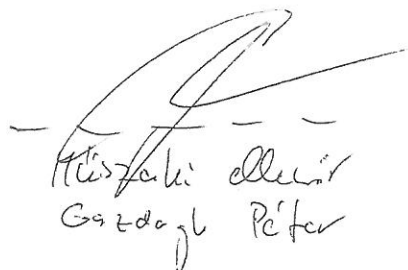 Műszaki ellenőr
Gazdagh Péter